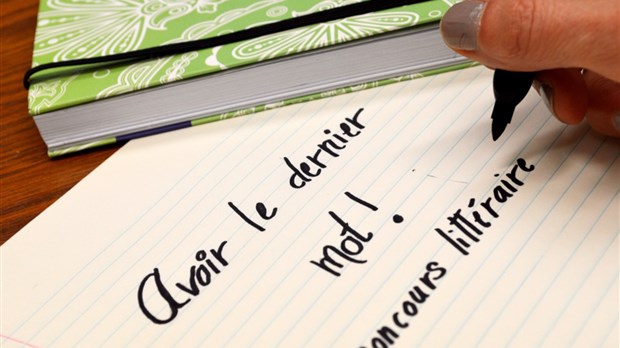 Avoir le dernier
mot!
concours littéraire